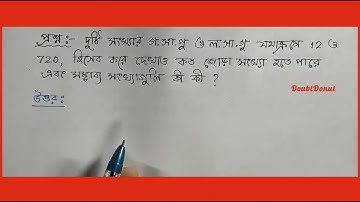 প্রশ্ন:- দুটি সংখ্যার গ.সা.গু ও ল.সা.গু যথাক্রমে 12 ও
720, হিসেব করে দেখাও কত জোড়া সংখ্যা হতে পারে
এবং সম্ভাব্য সংখ্যাগুলি কী কী ?
DoubtDonut
উত্তর: